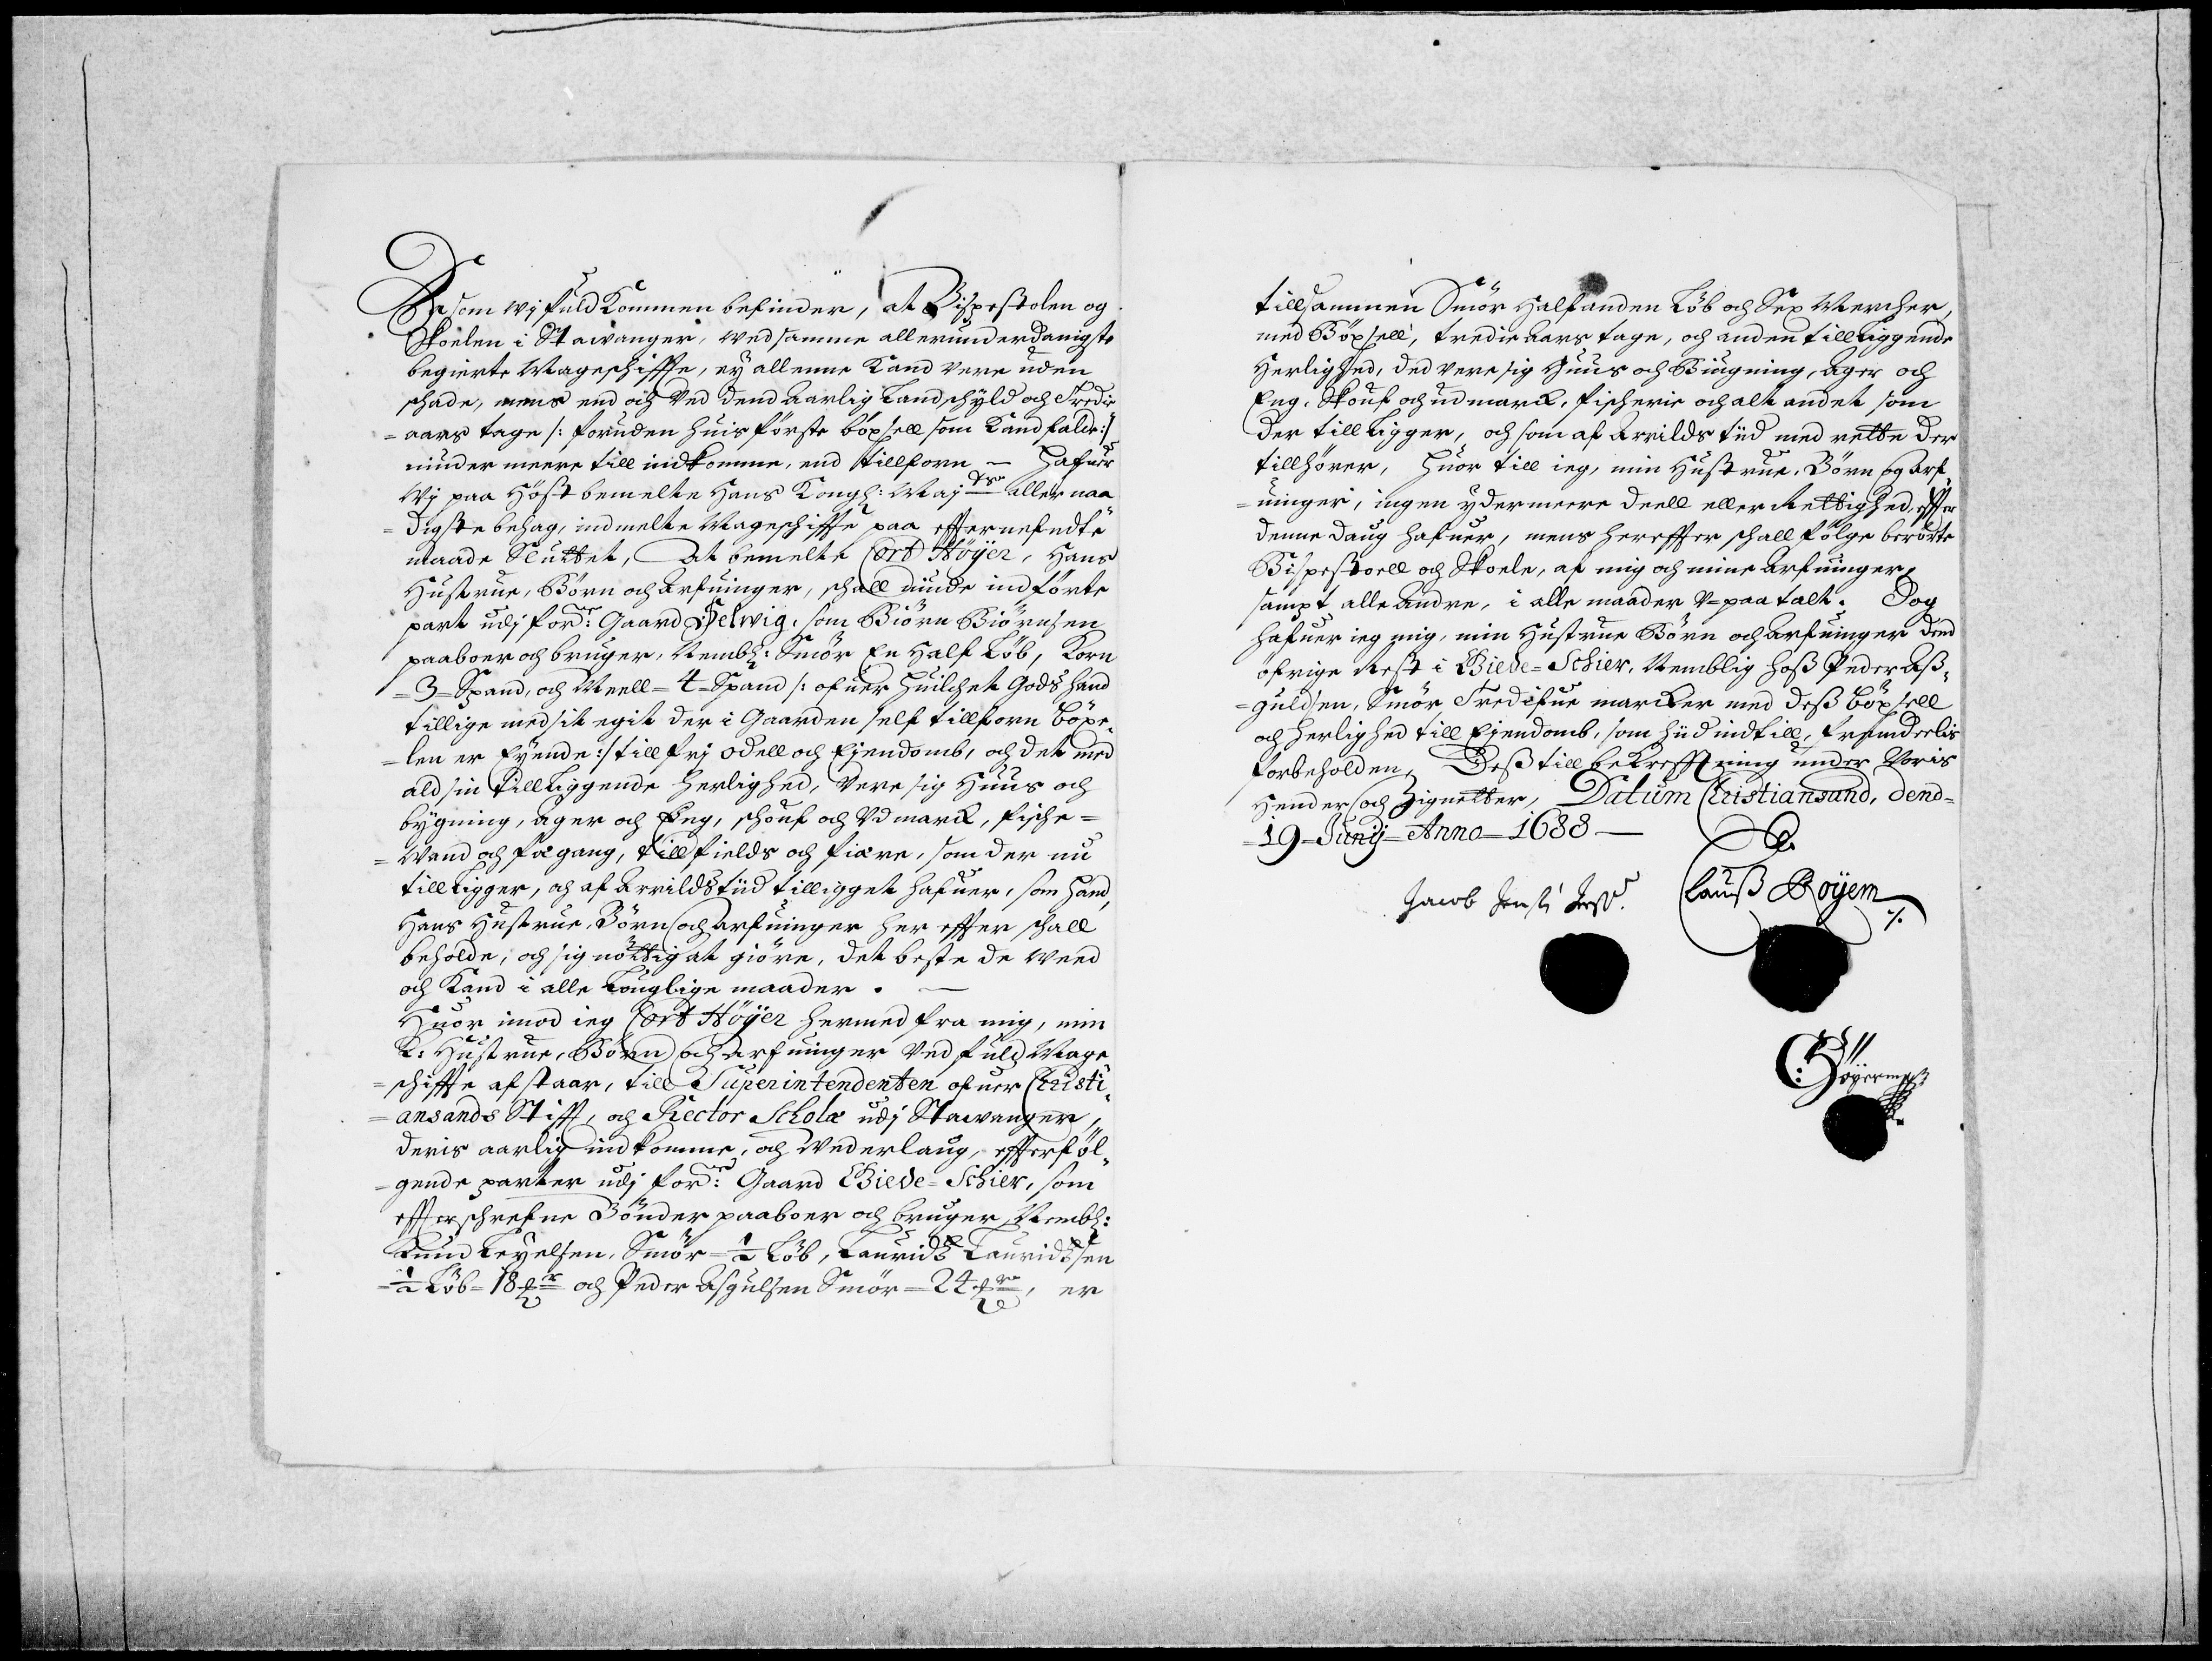 Da som Wj fuldkommen befinder, at Bispestolen og
Skoelen i Stawanger, wed samme allerunderdanigste
begierte Mageschiffte, ey allenne Kand vere uden
schade, mens end och Ved dend Aarlig Landschyld och Tredie
=aars tage /: foruden huis förste böxsell som Kand falde:/
niuder meere till indkomme, end tillforn — hafuer
Wj paa Höst bemelte Hans Kongh: Maj:ts aller naa
=digste behag, indmelte Mageschiffte paa effternefndte
maade Sluttet, At bemelte Cort Höyer, Hans
Hustrue, Börn och Arfuinger, schall niude indförte
part udj for:ne Gaard Selvig, som Biörn Biörnsen
paaboer och bruger, Nembl: Smör En Half Löb, Korn
=3=Spand, och Meell=4=Spand /: ofuer huilchet Gods hand
tillige med sit egit der i Gaarden self tillforn böxe,
=len er Eyende:/ till frj Odell och Ejendomb, och det med
ald sin till Liggende herlighed, vere sig Huus och
bygning, ager och Eng, schouf och Vdmarck, fische=
=Wand och fægang, till fields och fiære, som der nu
till Ligger, och af Arrilds tiid tilligget hafuer, som hand,
Hans Hustrue, Börn och Arfuinger her effter schall
beholde, och sig nöttig at giöre, det beste de Weed
och Kand i alle Louglige maader. —
Huor imod ieg Cort Höyer hermed fra mig, min
K: Hustrue, Börn och Arfuinger Ved fuld Mage
=schiffte afstaar, till Superintendenten ofuer Christi,
=ansands Stifft, och Rector Scholæ udj Stawanger,
deris aarlig indkomme, och Wederlaug, effterföl,
=gende parter udj for:ne Gaard Giede=Schier, som
effterschrefne Bönder paaboer och bruger, Nembl:
Knud Leyelsen, Smör=½ Löb, Laurids Lauridsen
=½ Löb=18 och Peder Asgulsen Smör=24, er
tillsammen Smör Halfanden Löb och Sex Mercher,
med Böxsell, tredie Aars tage, och anden till Liggende
Herlighed, ded vere sig Huus och Biugning, ager och
Eng, Skouf och udmarck, fischerie och alt andet som
der till Ligger, och som af Arrilds tiid med rette der
tillhörer, huor till ieg, min Hustrue, Börn og Arf,
=uinger, ingen ydermeere deell eller Rettighed, effter
denne daug hafuer, mens hereffter schall fölge berörte
Bispestoell och Skoele, af mig och mine Arfuinger,
sampt alle andre, i alle maader V=paatalt. Dog
hafuer ieg mig, min Hustrue Börn och Arfuinger dend
öfrige Rest i Giede=Schier, Nemblig hoß Peder Aß,
=guldsen, Smör Tredifue marcker med deß böxsell
och herlighed till Ejendomb, som hiid indtill, fremdeelis
forbeholden, Deß till bekrefftning under Voris
Hender och Zignetter, Datum Christiansand, dend=
=19=Junij=Anno=1688—
Jacob Jensen Clauß Boyem